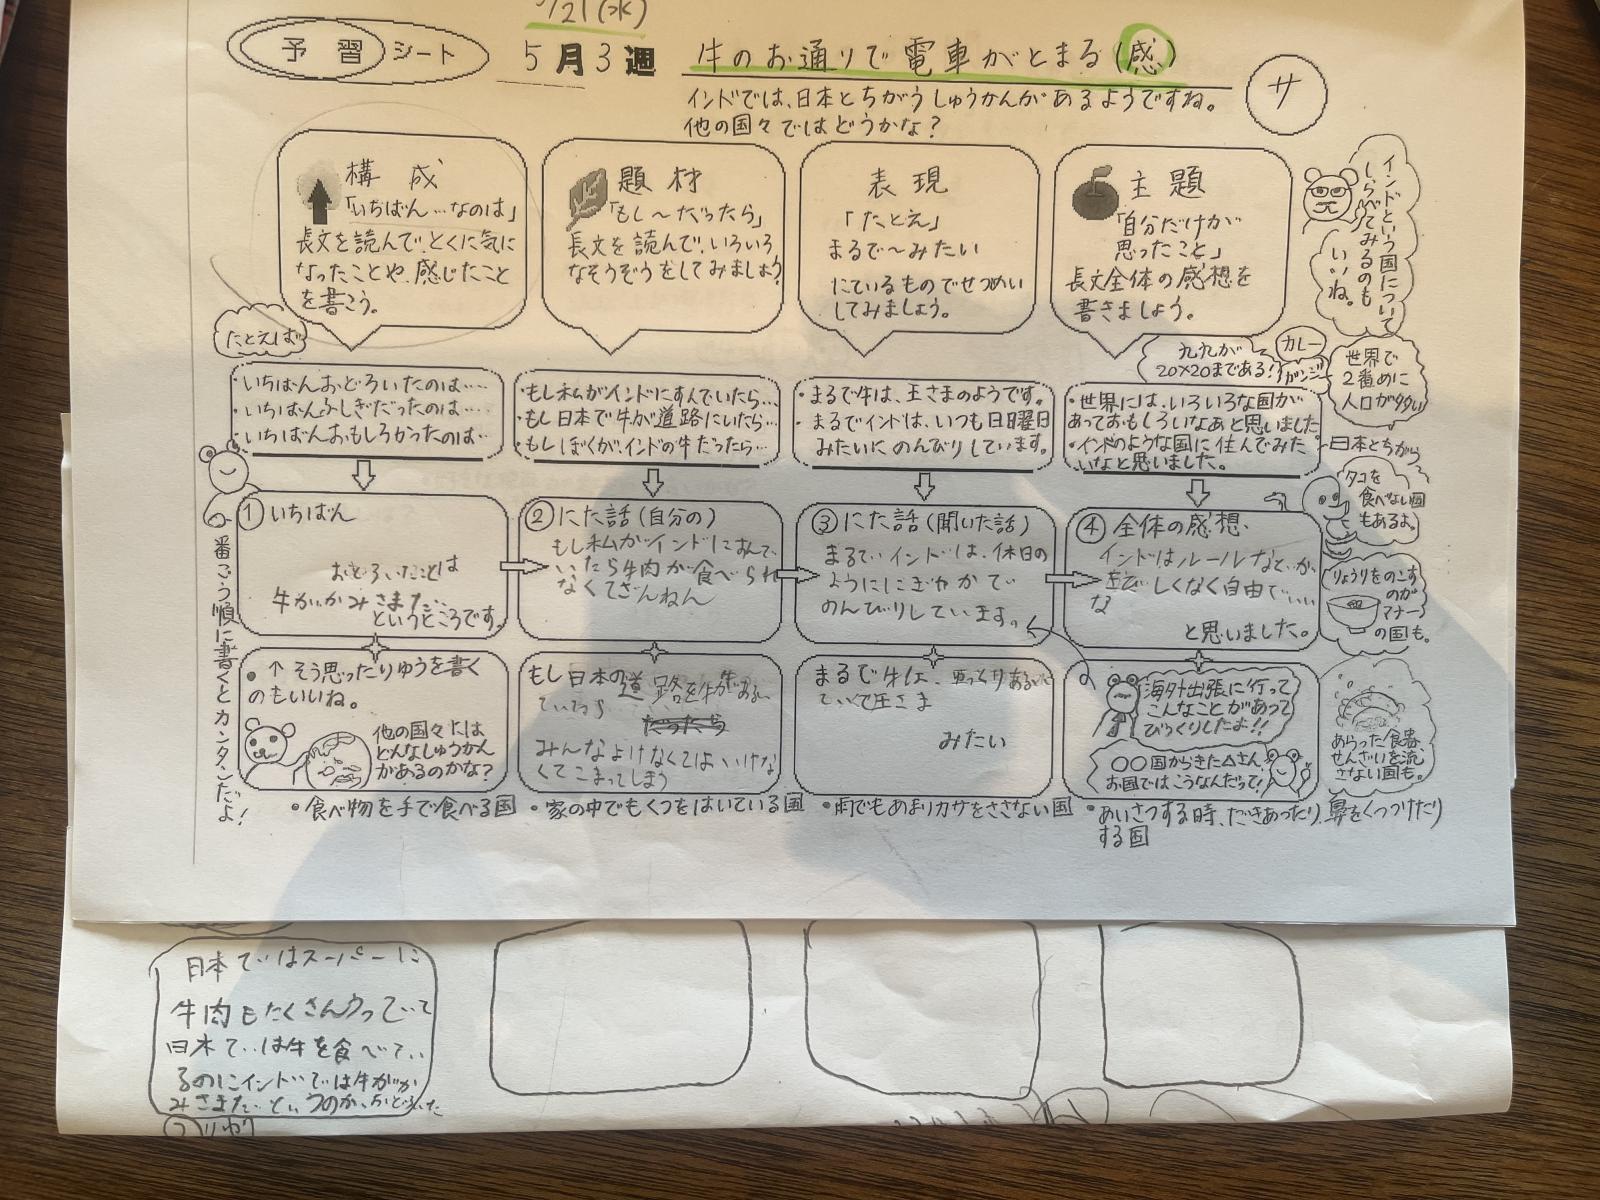 /21(水)
予習シート
5月3週
牛のお通りで電車がとまる(感)
サ
インドでは、日本とちがうしゅうかんがあるようですね。
他の国々ではどうかな?
構成
「いちばん…なのは」
長文を読んで、とくに気に
なったことや、感じたこと
を書こう。
題材
「もし〜だったら」
長文を読んで、いろいろ
なそうぞうをしてみましょう
表現
「たとえ」
まるで〜みたい
にているものでせつめい
してみましょう。
主題
「自分だけが
思ったこと」
長文全体の感想を
書きましょう。
インドという国について
しらべてみるのも
いいね。
たとえば
・いちばんおどろいたのは……
・いちばんふしぎだったのは…
・いちばんおもしろかったのは…
・もし私がインドにすんでいたら…
・もし日本で牛が道路にいたら…
・もしぼくが、インドの牛だったら…
・まるで牛は、王さまのようです。
・まるでインドは、いつも日曜日
みたいにのんびりしています。
・世界には、いろいろな国が
あっておもしろいなあと思いました
・インドのような国に住んでみた
いなと思いました。
九九が
20×20まである!
カレー
ガンジー
世界で
2番めに
人口が多い
日本とちがう
タコを
食べない国
もあるよ。
りょうりをのこす
のが
マナー
の国も。
あらった食器、
せんざいを流
さない国も。
番ごう順に書くとカンタンだよ!
①いちばん
おどろいたことは
牛がかみさまだ
というところです。
②にた話(自分の)
もし私がインドにすんで
いたら牛肉が食べられ
なくてざんねん
③にた話(聞いた話)
まるでインドは、休日の
ようににぎやかで
のんびりしています。
④全体の感想、
インドはルールなどが、
きびしくなく自由でいい
な
と思いました。
●↑そう思ったりゆうを書く
のもいいね。
他の国々では
どんなしゅうかん
があるのかな?
もし日本の道路を牛があるい
ていたら
みんなよけなくてはいけな
くてこまってしまう
まるで牛は、
ていて王さま
みたい
海外出張に行って
こんなことがあって
びっくりしたよ!!
○○国からきた△さん
お国ではこうなんだって!
●食べ物を手で食べる国
●家の中でもくつをはいている国
●雨でもあまりカサをささない国
●あいさつする時、だきあったり、鼻をくっつけたり
する国
日本ではスーパーに
牛肉もたくさんうっていて
日本では牛を食べてい
るのにインドでは牛がか
みさまだというのが、おどろいた